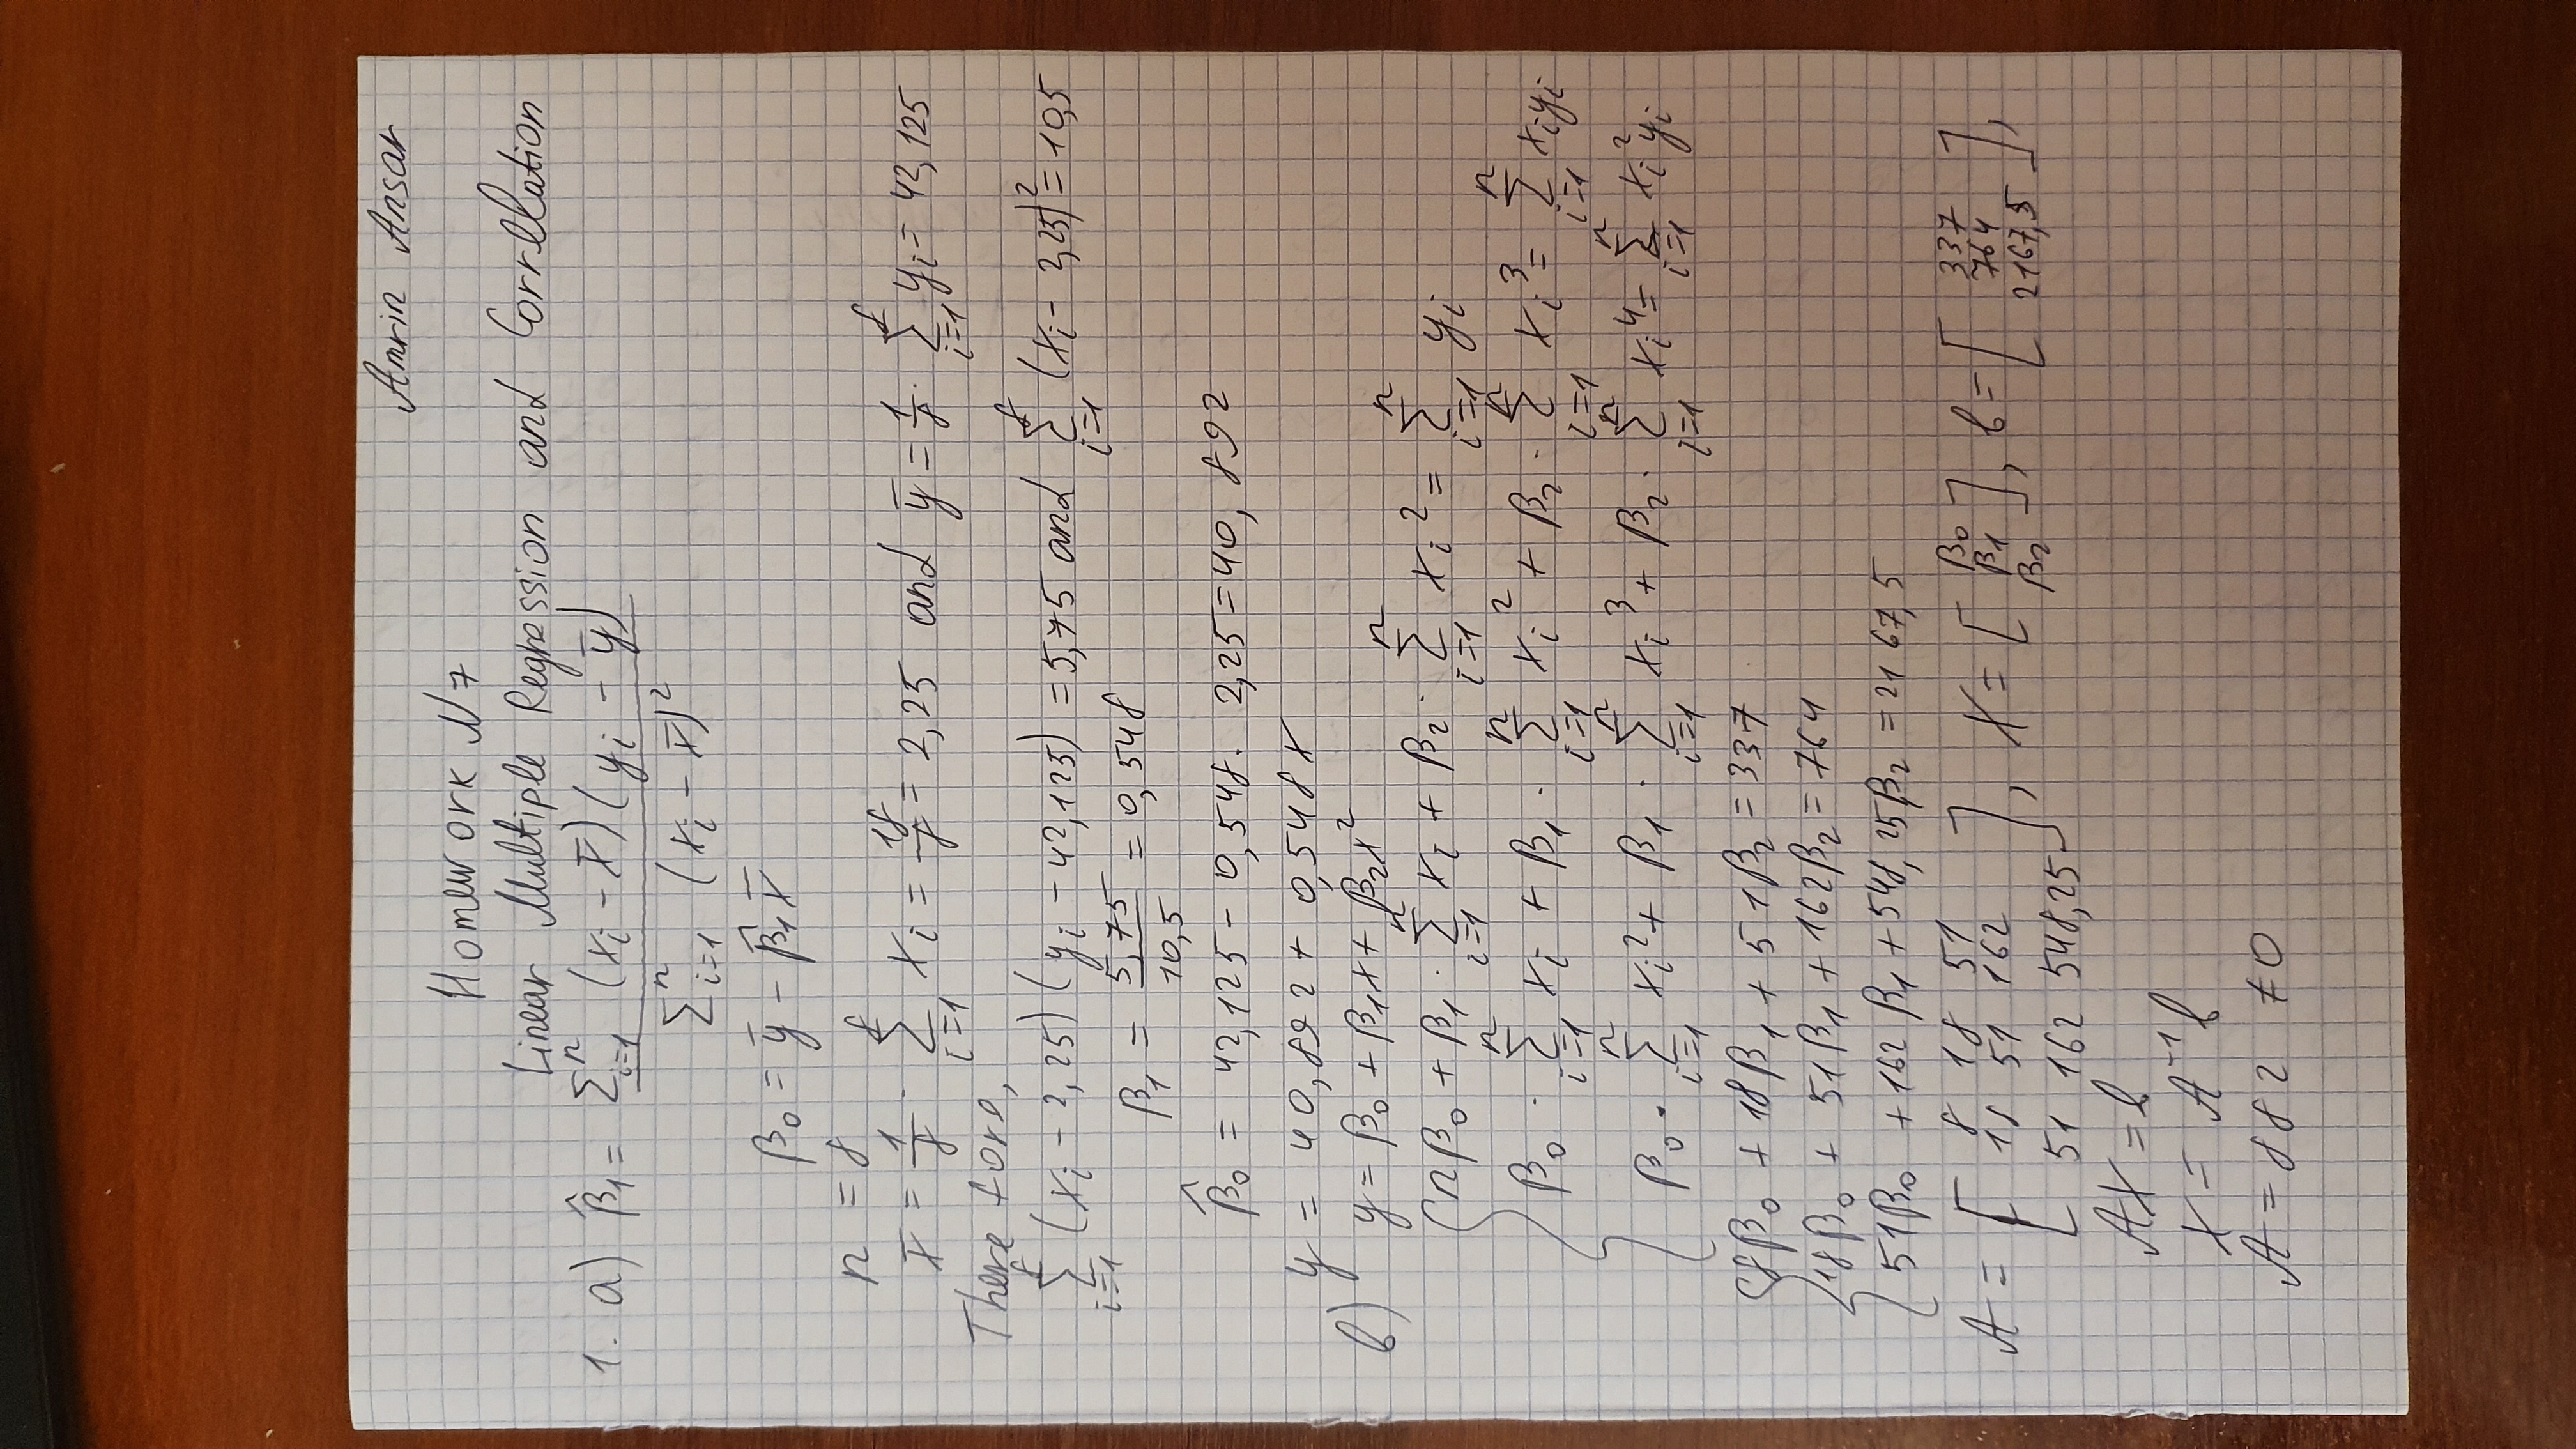 Amrin Ansar
Homework N7
Linear Multiple Regression and Corrllation
1. a) β̂₁ = Σⁿᵢ₌₁ (xᵢ - x̄)(yᵢ - ȳ) / Σⁿᵢ₌₁ (xᵢ - x̄)²
β₀ = ȳ - β̂₁x̄
n = 8
x̄ = 1/8 · Σ⁸ᵢ₌₁ xᵢ = 18/8 = 2,25 and ȳ = 1/8 · Σ⁸ᵢ₌₁ yᵢ = 42,125
Therefore,
Σ⁸ᵢ₌₁ (xᵢ - 2,25)(yᵢ - 42,125) = 5,75 and Σ⁸ᵢ₌₁ (xᵢ - 2,25)² = 10,5
β₁ = 5,75 / 10,5 = 0,548
β̂₀ = 42,125 - 0,548 · 2,25 = 40,892
y = 40,892 + 0,548x
b) y = β₀ + β₁x + β₂x²
{ nβ₀ + β₁ · Σⁿᵢ₌₁ xᵢ + β₂ · Σⁿᵢ₌₁ xᵢ² = Σⁿᵢ₌₁ yᵢ
β₀ · Σⁿᵢ₌₁ xᵢ + β₁ · Σⁿᵢ₌₁ xᵢ² + β₂ · Σⁿᵢ₌₁ xᵢ³ = Σⁿᵢ₌₁ xᵢyᵢ
β₀ · Σⁿᵢ₌₁ xᵢ² + β₁ · Σⁿᵢ₌₁ xᵢ³ + β₂ · Σⁿᵢ₌₁ xᵢ⁴ = Σⁿᵢ₌₁ xᵢ²yᵢ
{ 8β₀ + 18β₁ + 51β₂ = 337
18β₀ + 51β₁ + 162β₂ = 764
51β₀ + 162β₁ + 548,25β₂ = 2167,5
A = [ 8 18 51 ; 18 51 162 ; 51 162 548,25 ], X = [ β₀ ; β₁ ; β₂ ], b = [ 337 ; 764 ; 2167,5 ],
AX = b
X = A⁻¹b
A = 882 ≠ 0